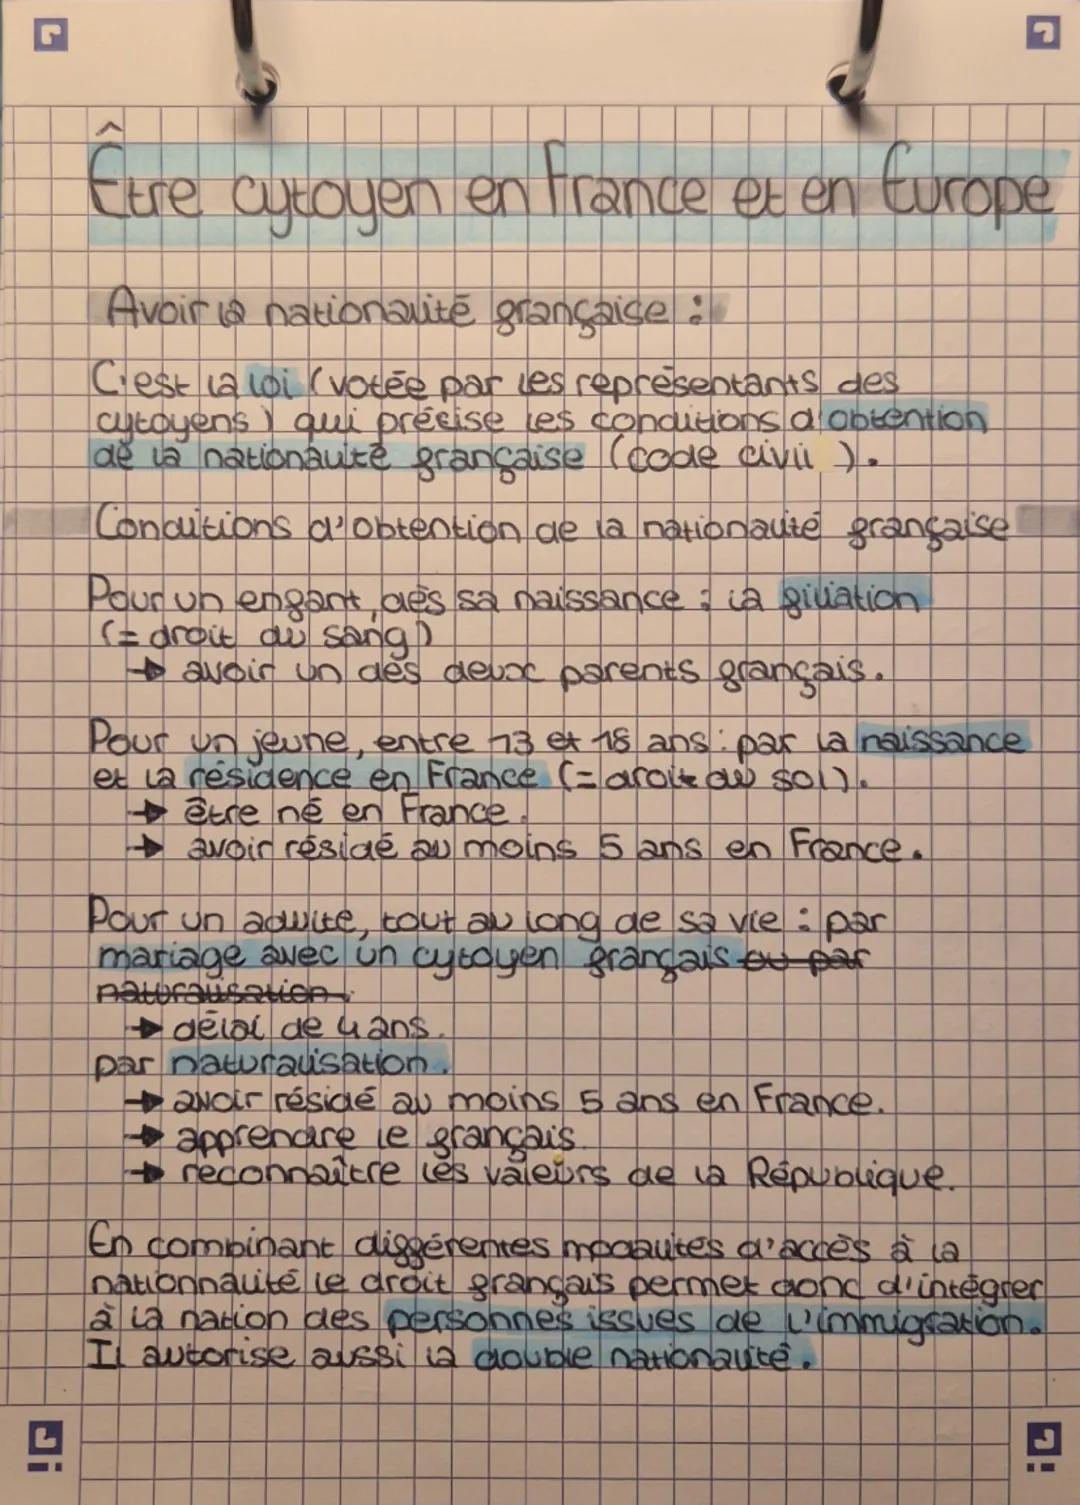 Être cytoyen en France et en Europe
Avoir la nationalité française :
C'est la loi (votée par les représentants des
cytoyens) qui précise les conditions d'obtention
de la nationalité française (code civil ).
Conditions d'obtention de la nationalité française
Pour un enfant, dès sa naissance : la filiation
(= droit du sang)
→ avoir un des deux parents français.
Pour un jeune, entre 13 et 18 ans : par la naissance
et la résidence en France (= droit du sol).
→ être né en France.
→ avoir résidé au moins 5 ans en France.
Pour un adulte, tout au long de sa vie : par
mariage avec un cytoyen français ou par
naturalisation.
→ délai de 4 ans.
par naturalisation.
→ avoir résidé au moins 5 ans en France.
→ apprendre le français.
→ reconnaître les valeurs de la République.
En combinant différentes modalités d'accès à la
nationnalité le droit français permet donc d'intégrer
à la nation des personnes issues de l'immigration.
Il autorise aussi la double nationalité.